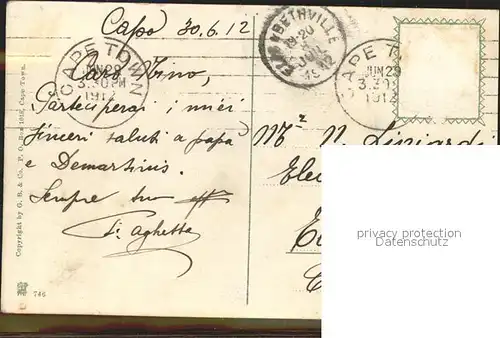 Capo 30.6.12
CAPE TOWN
JUN 29
3.30 PM
1912
ELISABETHVILLE
19-20
JUIL
1912
CAPE T
JUN 29
3.30
1912
Caro Nino,
Parteciperai i miei
sinceri saluti a papà
e Demartinis.
Sempre tuo aff
Mr N.
Copyright by G. B. & Co. P. O. Box 1618, Cape Town.
746
privacy protection
Datenschutz